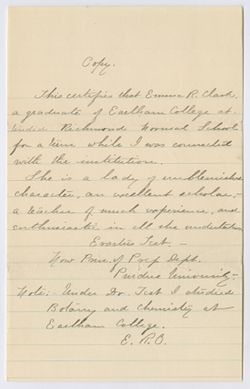 Copy.
This certifies that Emma R. Clark,
a graduate of Earlham College at
Richmond Normal School
for a time while I was connected
with the institution.
She is a lady of unblemished
character, an excellent scholar,
a teacher of much experience, and
enthusiastic in all she undertakes
Erastus Test. -
Now Prin. of Prep Dept.
Purdue University -
Note: - Under Dr. Test I studied
Botany and Chemistry at
Earlham College.
E. R. C.